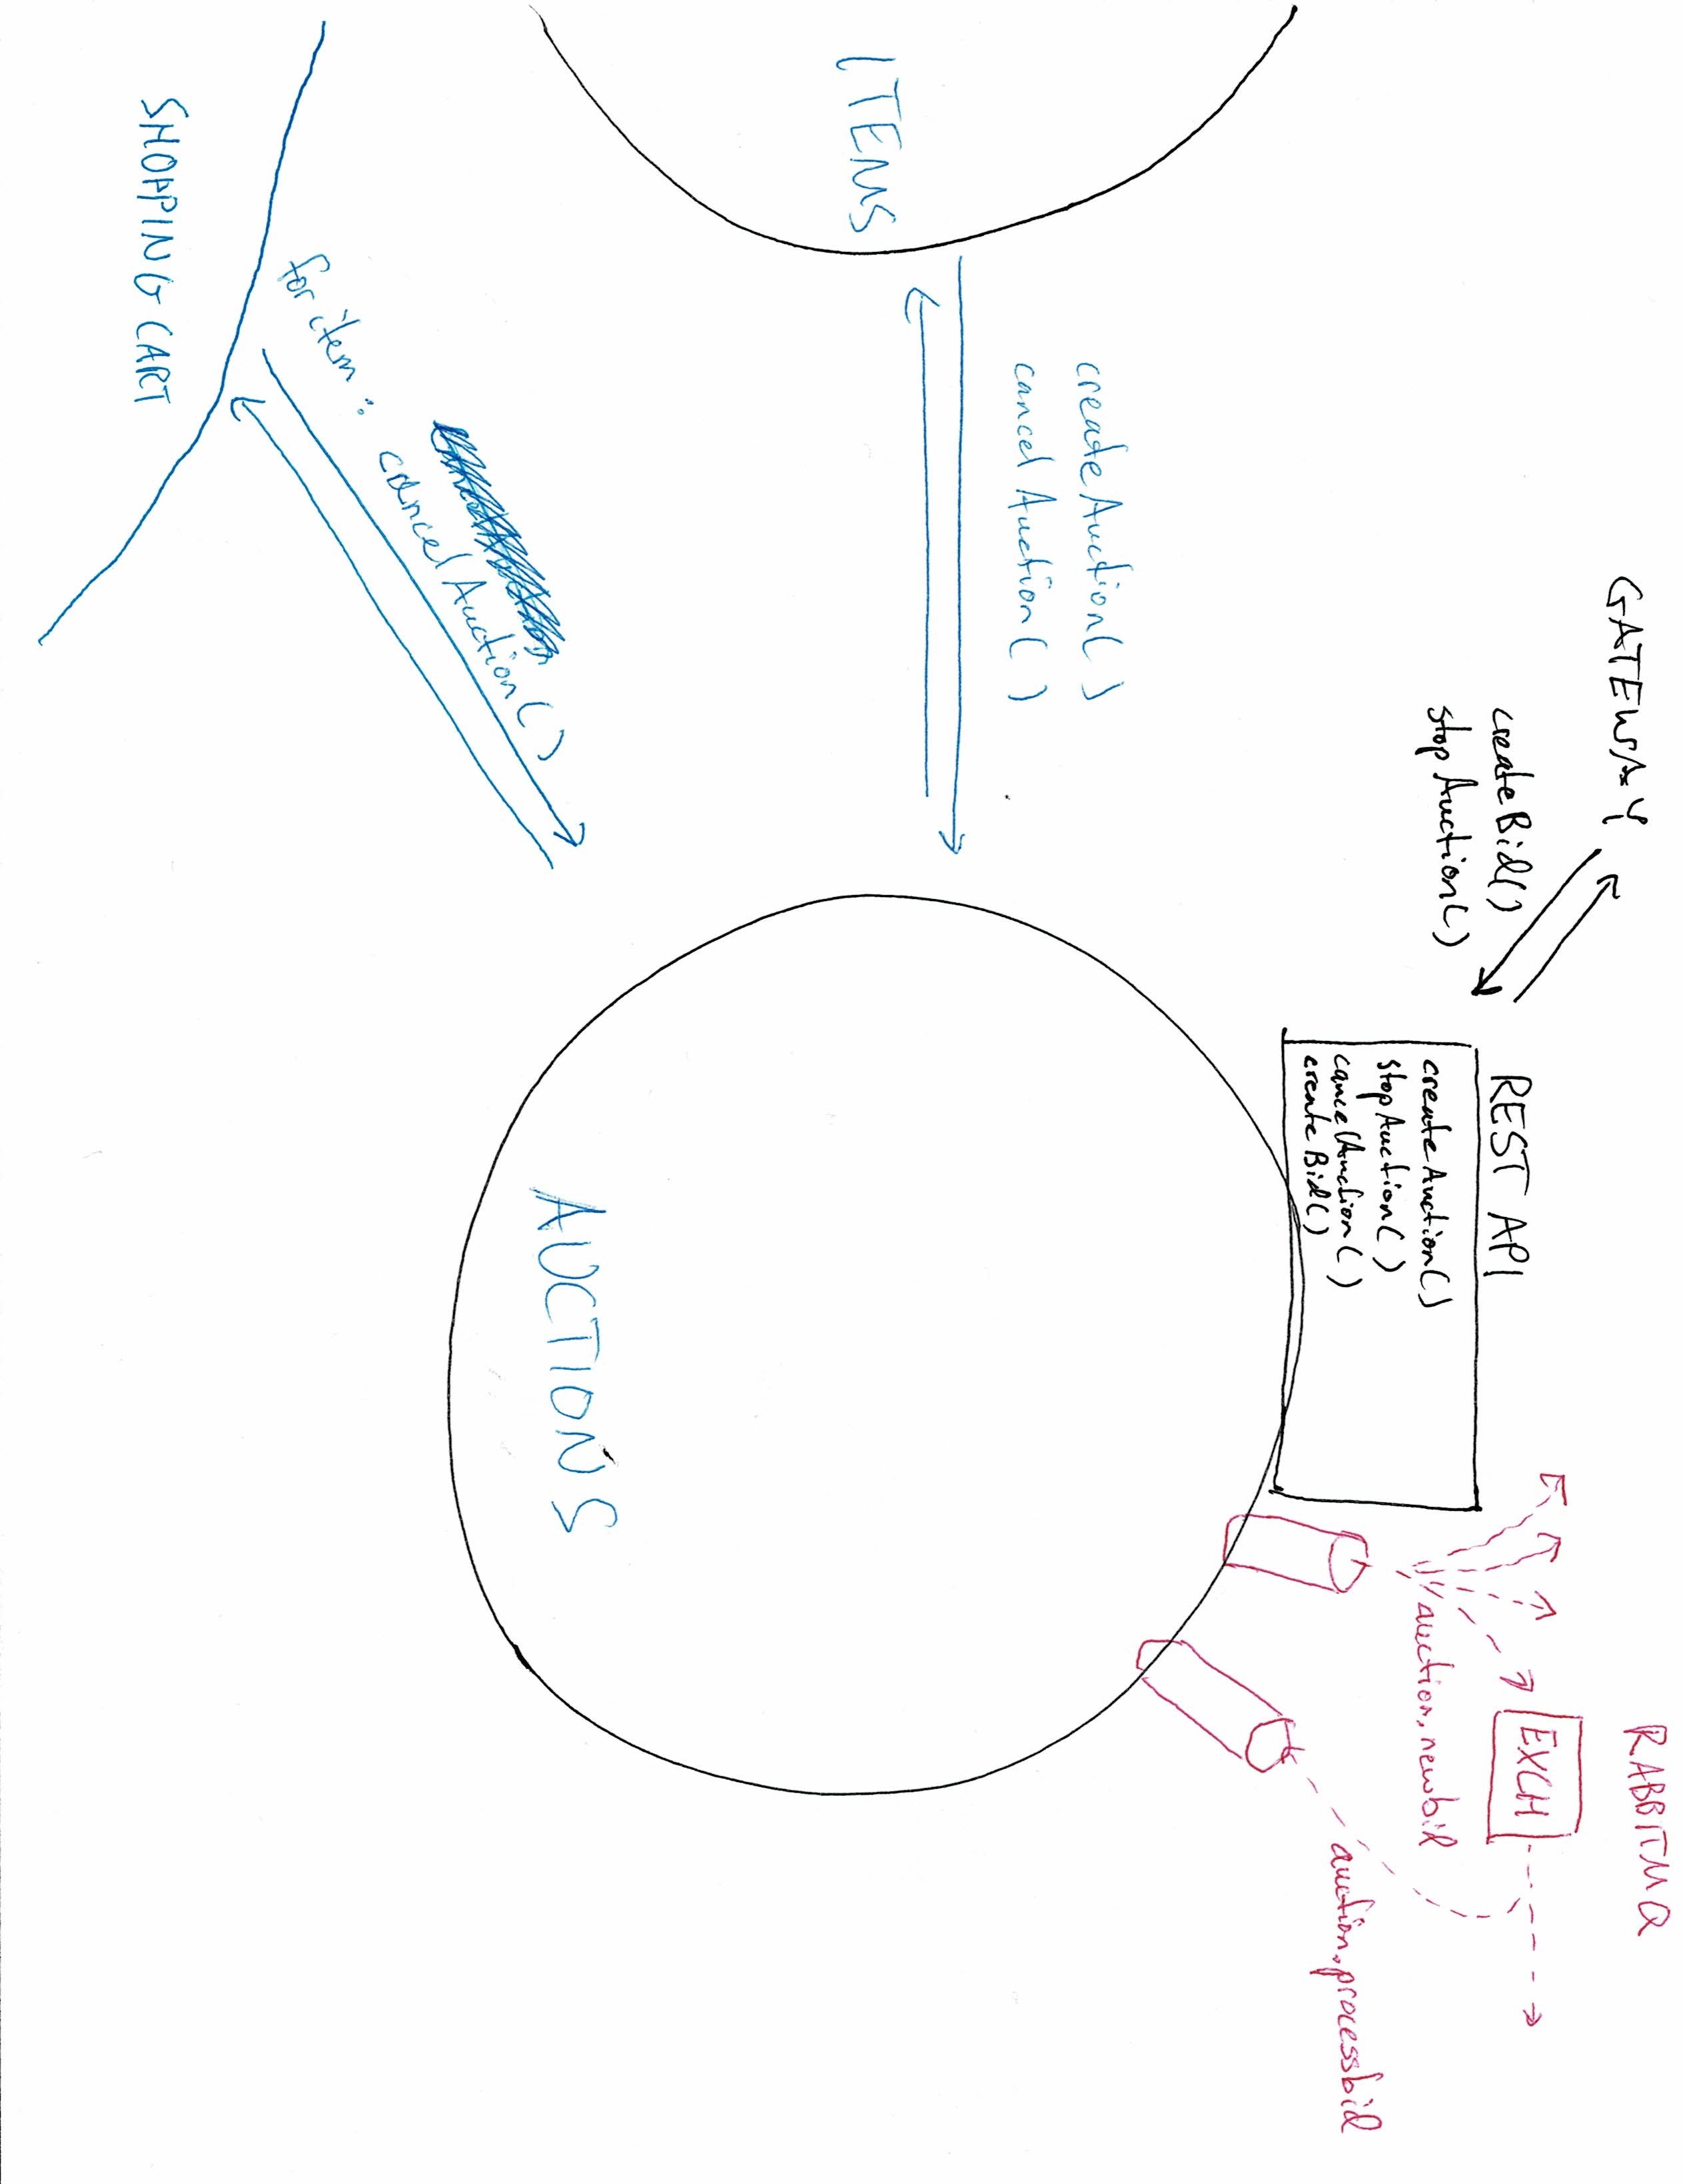 GATEWAY
createBid()
stopAuction()
REST API
createAuction()
stopAuction()
cancelAuction()
createBid()
RABBITMQ
EXCH
auction.newbid
auction.processbid
createAuction()
cancelAuction()
ITEMS
AUCTIONS
for item : cancelAuction()
SHOPPING CART